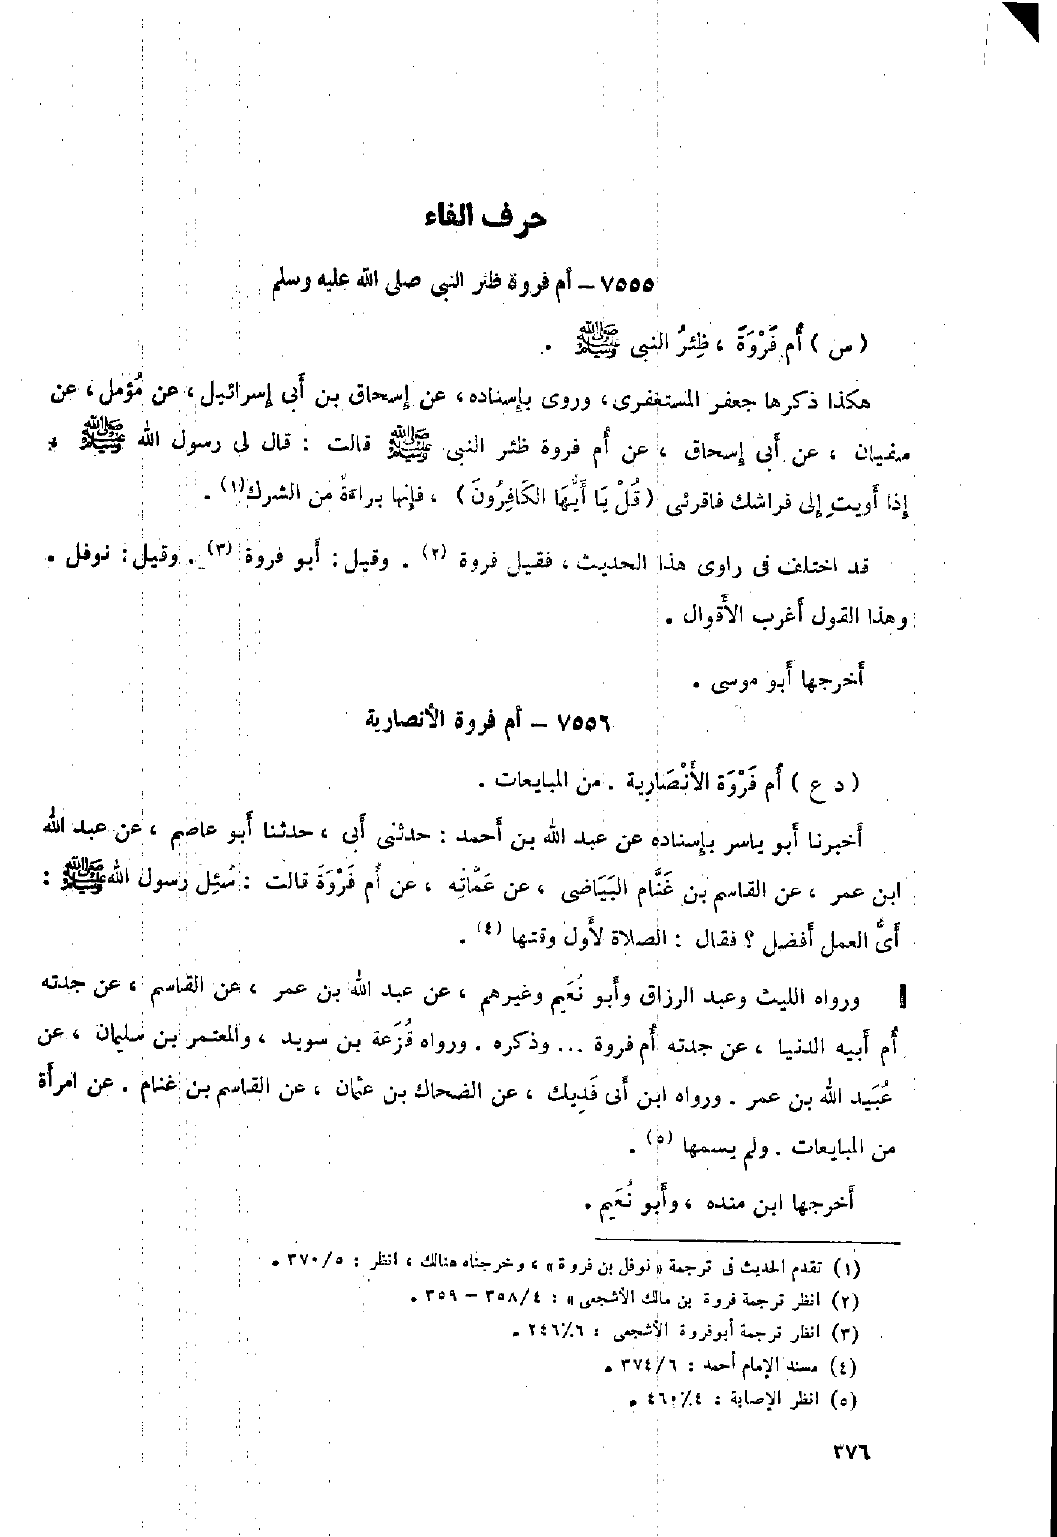 حرف الفاء
٧٥٥٥ – أم فروة ظئر النبى صلى الله عليه وسلم
( س ) أُم فَرْوَةَ ، ظِئرُ النبى ﷺ .
هكذا ذكرها جعفر المستغفرى ، وروى بإسناده ، عن إسحاق بن أبى إسرائيل ، عن مُؤمل ، عن
سفيان ، عن أبى إسحاق ، عن أُم فروة ظئر النبى ﷺ قالت : قال لى رسول الله ﷺ :
إذا أويتِ إلى فراشك فاقرئى ( قُلْ يَا أَيُّهَا الكَافِرُونَ ) ، فإنها براءةٌ من الشرك (١) .
قد اختلف فى راوى هذا الحديث ، فقيل فروة (٢) . وقيل : أبو فروة (٣) . وقيل : نوفل .
وهذا القول أغرب الأَقوال .
أخرجها أبو موسى .
٧٥٥٦ – أم فروة الأنصارية
( د ع ) أُم فَرْوَة الأَنْصَارِية . من المبايعات .
أخبرنا أبو ياسر بإسناده عن عبد الله بن أحمد : حدثنى أبى ، حدثنا أبو عاصم ، عن عبد الله
ابن عمر ، عن القاسم بن غَنَّام البَيَاضى ، عن عَمَّاتِه ، عن أُم فَرْوَةَ قالت : سُئِل رسول الله ﷺ :
أىُّ العمل أفضل ؟ فقال : الصلاة لأَول وقتها (٤) .
ورواه الليث وعبد الرزاق وأبو نُعَيم وغيرهم ، عن عبد الله بن عمر ، عن القاسم ، عن جدته
أُم أبيه الدنيا ، عن جدته أُم فروة ... وذكره . ورواه قُزَعة بن سويد ، والمعتمر بن سليمان ، عن
عُبَيد الله بن عمر . ورواه ابن أبى فَدِيك ، عن الضحاك بن عثمان ، عن القاسم بن غنام . عن امرأة
من المبايعات . ولم يسمها (٥) .
أخرجها ابن منده ، وأبو نُعَيم .
(١) تقدم الحديث فى ترجمة « نوفل بن فروة » ، وخرجناه هنالك ، انظر : ٣٧٠/٥ .
(٢) انظر ترجمة فروة بن مالك الأشجعى » : ٣٥٨/٤ – ٣٥٩ .
(٣) انظر ترجمة أبو فروة الأشجعى : ٢٤٦/٦ .
(٤) مسند الإمام أحمد : ٣٧٤/٦ .
(٥) انظر الإصابة : ٤٦٠/٤ .
٣٧٦